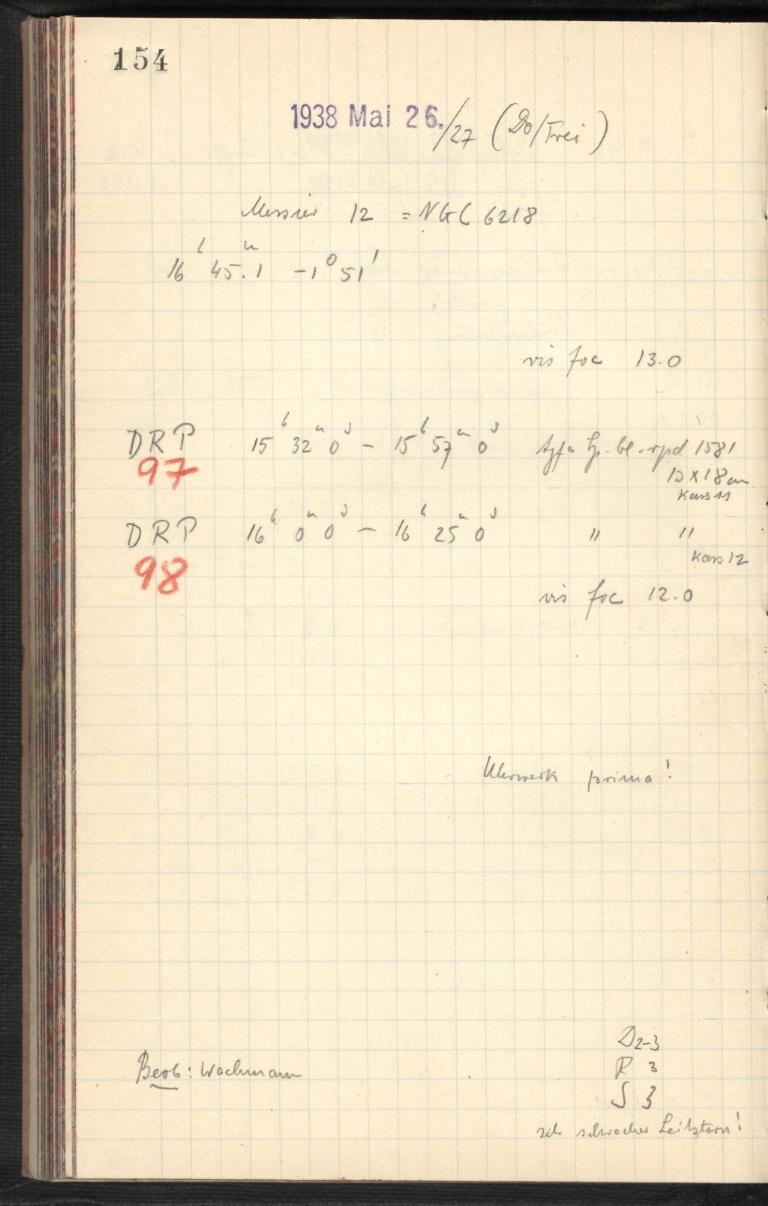 154
1938 Mai 26./27 (Do/Frei)
Messier 12 = NGC 6218
16h 45m.1 -1° 51'
vis foc 13.0
DRP 15h 32m 0s – 15h 57m 0s Agfa bl. rpd 1581
97 13 X 18 cm
Kass 11
DRP 16h 0m 0s – 16h 25m 0s " "
98 Kass 12
vis foc 12.0
Uhrwerk prima!
D 2-3
Beob: Wachmann R 3
S 3
sehr schwacher Leitstern!